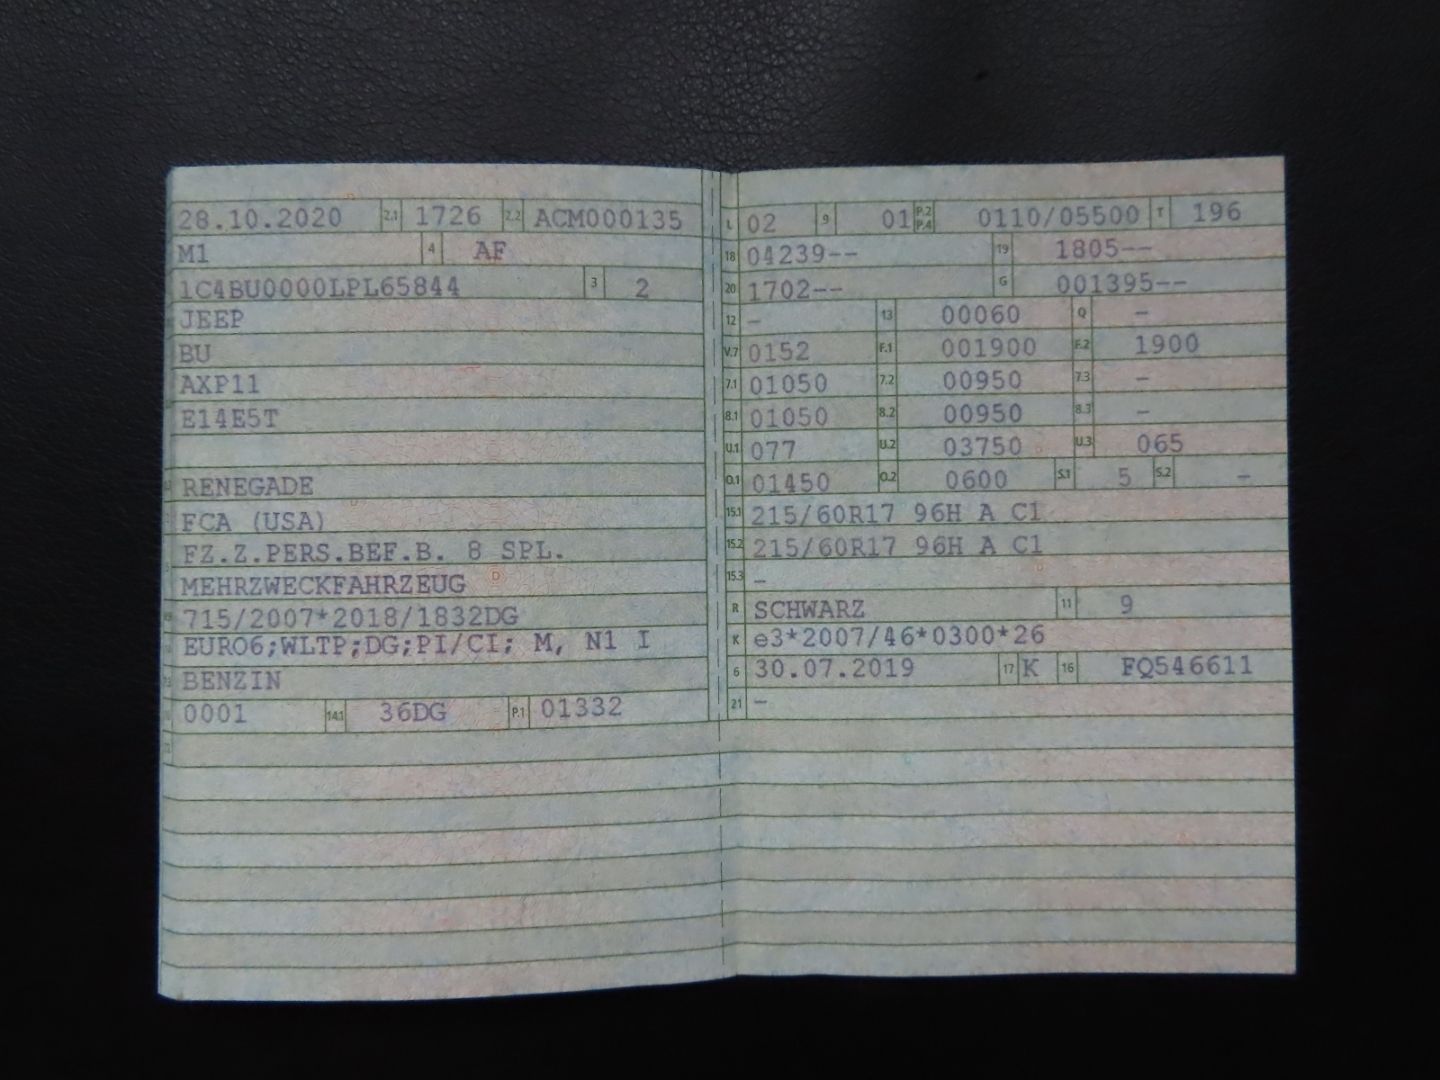 28.10.2020 2.1 1726 2.2 ACM000135
M1 4 AF
1C4BU0000LPL65844 3 2
JEEP
BU
AXP11
E14E5T
RENEGADE
FCA (USA)
FZ.Z.PERS.BEF.B. 8 SPL.
MEHRZWECKFAHRZEUG
715/2007*2018/1832DG
EURO6;WLTP;DG;PI/CI; M, N1 I
BENZIN
0001 14.1 36DG P.1 01332
L 02 9 01 P.2 P.4 0110/05500 T 196
18 04239-- 19 1805--
20 1702-- G 001395--
12 - 13 00060 Q -
V.7 0152 F.1 001900 F.2 1900
7.1 01050 7.2 00950 7.3 -
8.1 01050 8.2 00950 8.3 -
U.1 077 U.2 03750 U.3 065
O.1 01450 O.2 0600 S.1 5 S.2 -
15.1 215/60R17 96H A C1
15.2 215/60R17 96H A C1
15.3 -
R SCHWARZ 11 9
K e3*2007/46*0300*26
6 30.07.2019 17 K 16 FQ546611
21 -